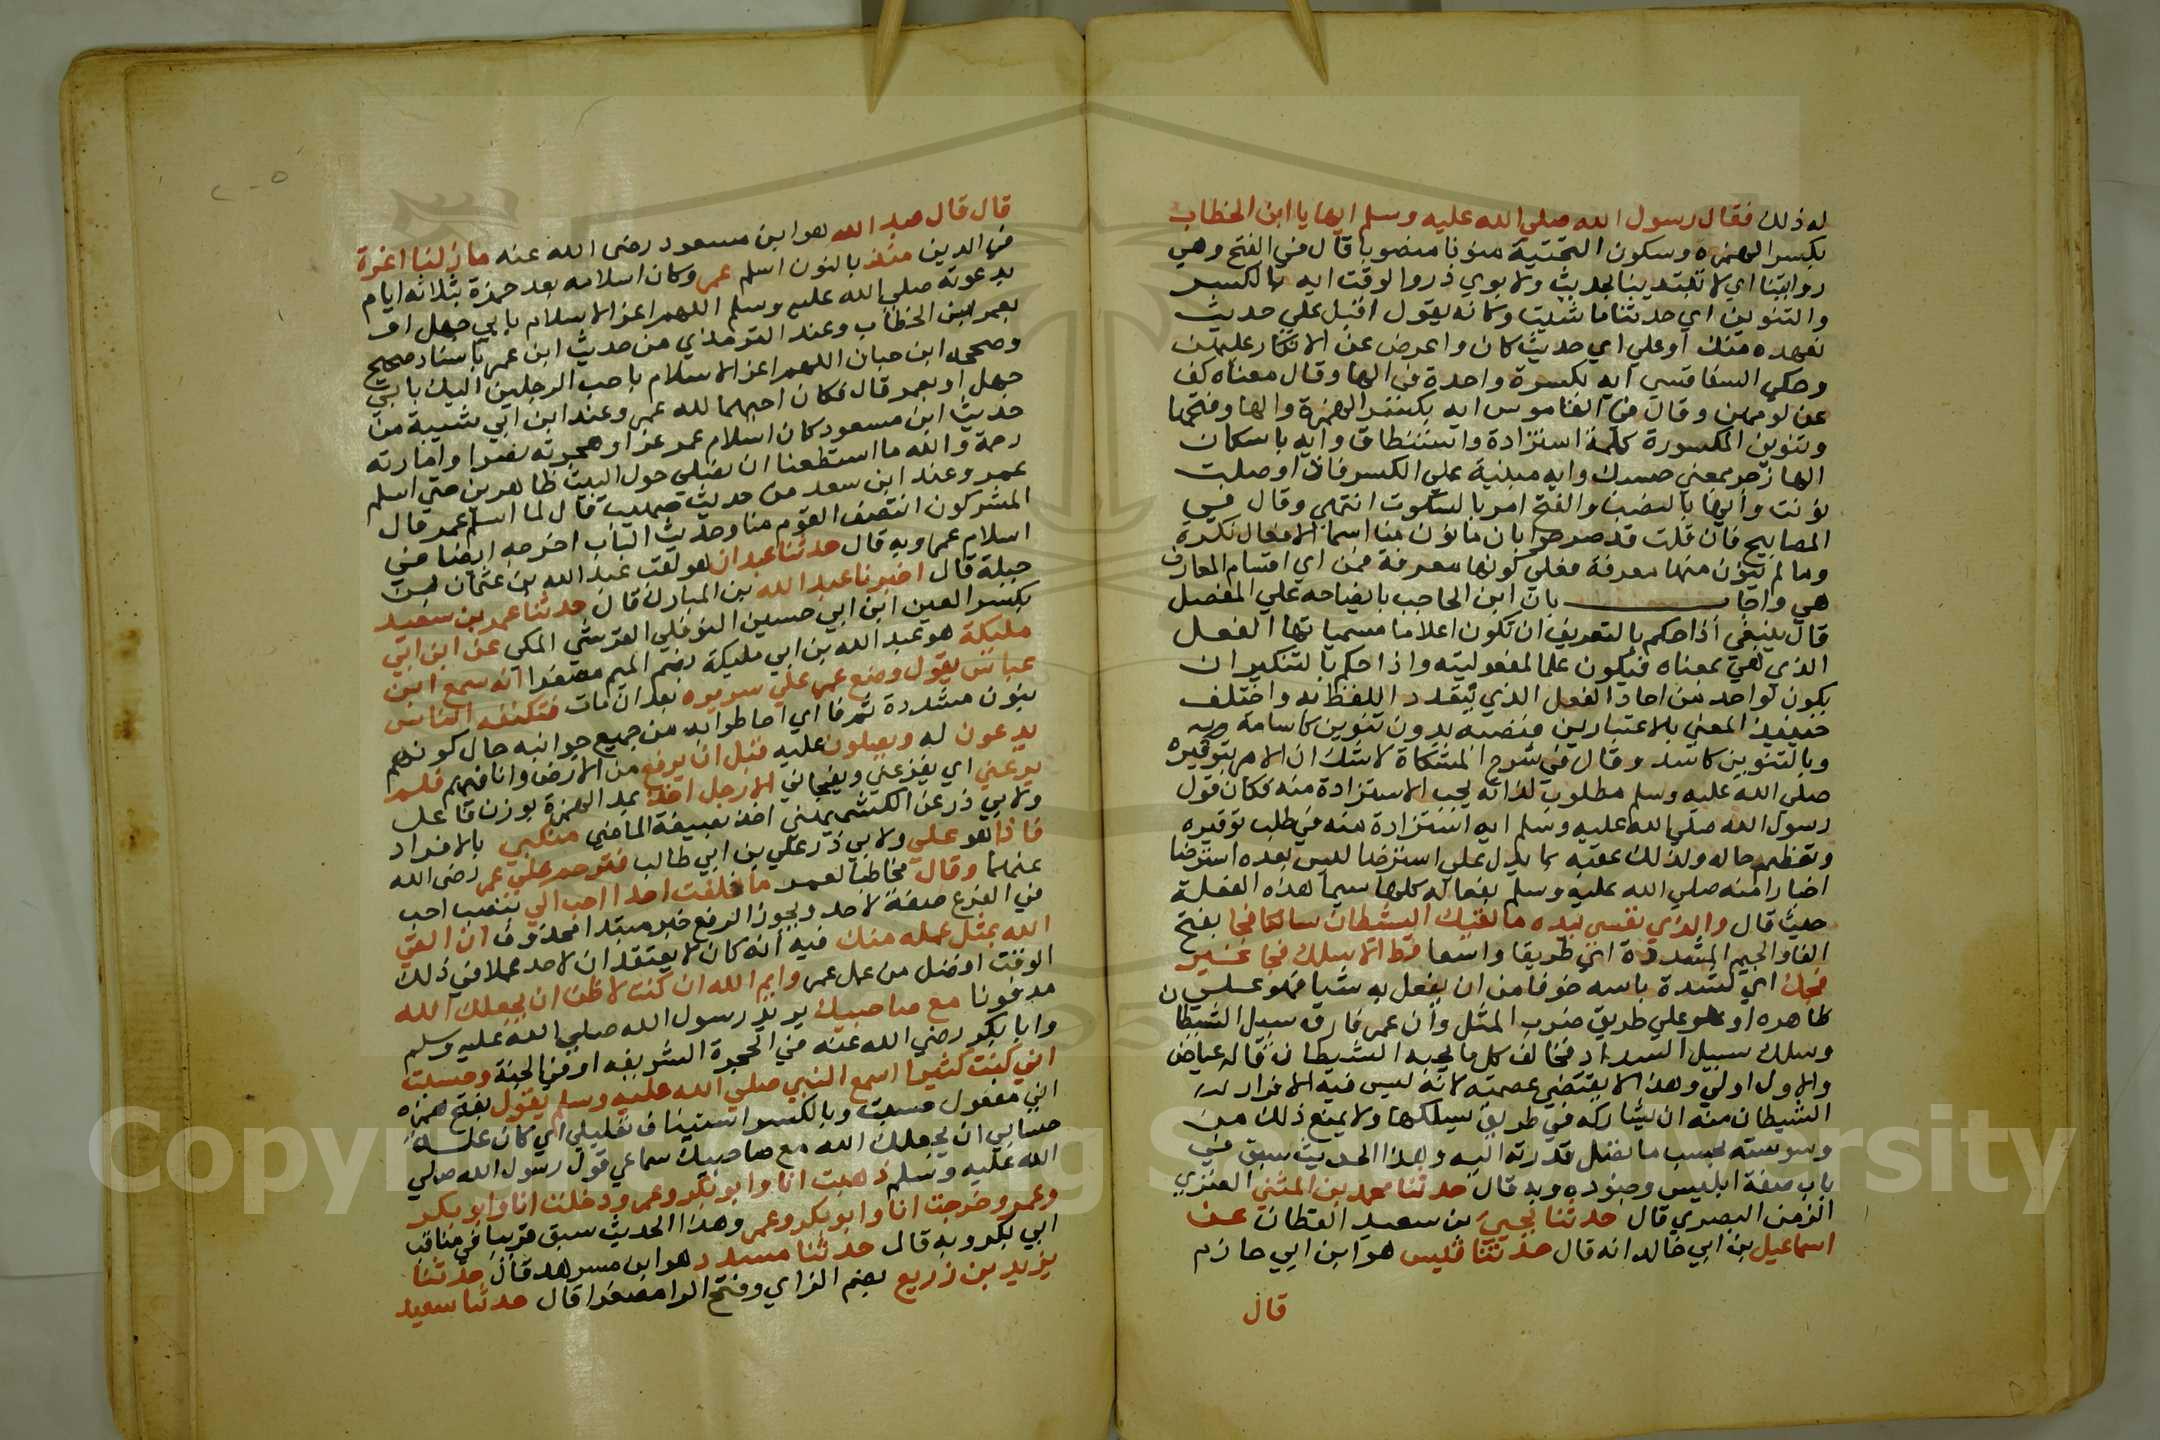 له ذلك فقال رسول الله صلي الله عليه وسلم ايها يا ابن الخطاب
بكسر الهمزة وسكون التحتية منونا منصوبا قال في الفتح وهي
روايتنا اي لا تبتدينا بحديث ولابوي ذر والوقت ايه بالكسر
والتنوين اي حدثنا ما شئت وكانه يقول اقبل علي حديث
نعهده منك او علي اي حديث كان واعرض عن الانكار عليهن
وحكي السفاقسي ايه بكسرة واحدة في الها وقال معناه كف
عن لومهن وقال في القاموس ايه بكسر الهمزة والها وفتحها
وتنوين المكسورة كلمة استزادة واستنطاق وايه باسكان
الها زجر بمعني حسبك وايه مبنية علي الكسر فاذا وصلت
نونت وايها بالنصب والفتح امر بالسكوت انتهي وقال في
المصابيح فان قلت قد صرحوا بان ما نون من اسما الافعال نكرة
وما لم ينون منها معرفة فعلي كونها معرفة فمن اي اقسام المعارف
هي واجاب بان ابن الحاجب بايضاحه علي المفصل
قال ينبغي اذا حكم بالتعريف ان تكون اعلاما مسمياتها الفعل
الذي هي بمعناه فيكون علما لمعقوليته واذا حكم بالتنكير ان
يكون لواحد من احاد الفعل الذي يتعدد اللفظ به واختلف
حينئذ المعني بالاعتبارين فنصبه بدون تنوين كاسامة وبه
وبالتنوين كاسد وقال في شرح المشكاة لا شك ان الامر بتوقيره
صلي الله عليه وسلم مطلوب لذاته يجب الاستزادة منه فكان قول
رسول الله صلي الله عليه وسلم ايه استزادة منه في طلب توقيره
وتعظيم حاله ولذلك عقبه بما يدل علي استرضا ليس بعده استرضا
اخبارا منه صلي الله عليه وسلم بفعاله كلها سيما هذه الفعلة
حيث قال والذي نفسي بيده ما لقيك الشيطان سالكا فجا بفتح
الفا والجيم المشددة اي طريقا واسعا قط الا سلك فجا غير
فجك اي لشدة باسه خوفا من ان يفعل به شيا فهو علي
ظاهره او هو علي طريق ضرب المثل وان عمر فارق سبيل الشيطان
وسلك سبيل السداد فخالف كل ما يحبه الشيطان قاله عياض
والاول اولي وهذا لا يقتضي عصمته لانه ليس فيه الا فرار
الشيطان منه ان يشاركه في طريق سلكها ولا يمنع ذلك من
وسوسته بحسب ما تصل قدرته اليه وهذا الحديث سبق في
باب صفة ابليس وجنوده وبه قال حدثنا محمد بن المثني العنزي
الزمن البصري قال حدثنا يحيي بن سعيد القطان عن
اسماعيل بن ابي خالد انه قال حدثنا قيس هو ابن ابي حازم
قال
قال قال عبد الله هو ابن مسعود رضي الله عنه ما زلنا اعزة
في الدين منذ بالنون اسلم عمر وكان اسلامه بعد حمزة بثلاثة ايام
بدعوته صلي الله عليه وسلم اللهم اعز الاسلام بابي جهل او
بعمر ابن الخطاب وعند الترمذي من حديث ابن عمر باسناد صحيح
وصححه ابن حبان اللهم اعز الاسلام باحب الرجلين اليك بابي
جهل او بعمر قال فكان احبهما لله عمر وعند ابن ابي شيبة من
حديث ابن مسعود كان اسلام عمر عزا وهجرته نصرا وامارته
رحمة والله ما استطعنا ان نصلي حول البيت ظاهرين حتي اسلم
عمر وعند ابن سعد من حديث صهيب قال لما اسلم عمر قال
المشركون انتصف القوم منا وحديث الباب اخرجه ايضا في
اسلام عمر وبه قال حدثنا عبدان هو لقب عبد الله بن عثمان بن
جبلة قال اخبرنا عبد الله بن المبارك قال حدثنا عمر بن سعيد
بكسر العين ابن ابي حسين النوفلي القرشي المكي عن ابن ابي
مليكة هو عبد الله بن ابي مليكة بضم الميم مصغرا انه سمع ابن
عباس يقول وضع عمر علي سريره بعد ان مات فتكنفه الناس
بنون مشددة ثم فا اي احاطوا به من جميع جوانبه حال كونهم
يدعون له ويصلون عليه قبل ان يرفع من الارض وانا فيهم فلم
يرعني اي يفزعني ويفجاني الا رجل اخذ بمد الهمزة بوزن فاعل
ولابي ذر عن الكشميهني اخذ بصيغة الماضي منكبي بالافراد
فاذا هو علي ولابي ذر علي بن ابي طالب فترحم علي عمر رضي الله
عنهما وقال مخاطبا لعمر ما خلفت احدا احب الي بنصب احب
في الفرع صفة لاحد ويجوز الرفع خبر مبتدا محذوف ان القي
الله بمثل عمله منك فيه انه كان لا يعتقد ان لاحد عملا في ذلك
الوقت افضل من عمل عمر وايم الله ان كنت لاظن ان يجعلك الله
مدفونا مع صاحبيك يريد رسول الله صلي الله عليه وسلم
وابا بكر رضي الله عنه في الحجرة الشريفه او في الجنة وحسبت
اني كنت كثيرا اسمع النبي صلي الله عليه وسلم يقول بفتح همزه
اني مفعول حسبت وبالكسر استيناف تعليلي اي كان علي
حسابي ان يجعلك الله مع صاحبيك سماعي قول رسول الله صلي
الله عليه وسلم ذهبت انا وابو بكر وعمر ودخلت انا وابو بكر
وعمر وخرجت انا وابو بكر وعمر وهذا الحديث سبق قريبا في مناقب
ابي بكر وبه قال حدثنا مسدد هو ابن مسرهد قال حدثنا
يزيد بن زريع بضم الزاي وفتح الرا مصغرا قال حدثنا سعيد
Copyright © King Saud University